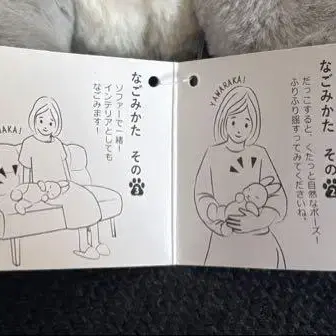 なごみかた その2
だっこすると、くたっと自然なポーズー
ふりふり揺すってみてくださいね。
YAWARAKA!
なごみかた その3
ソファーで一緒ー
インテリアとしても
なごみます!
RAKA!